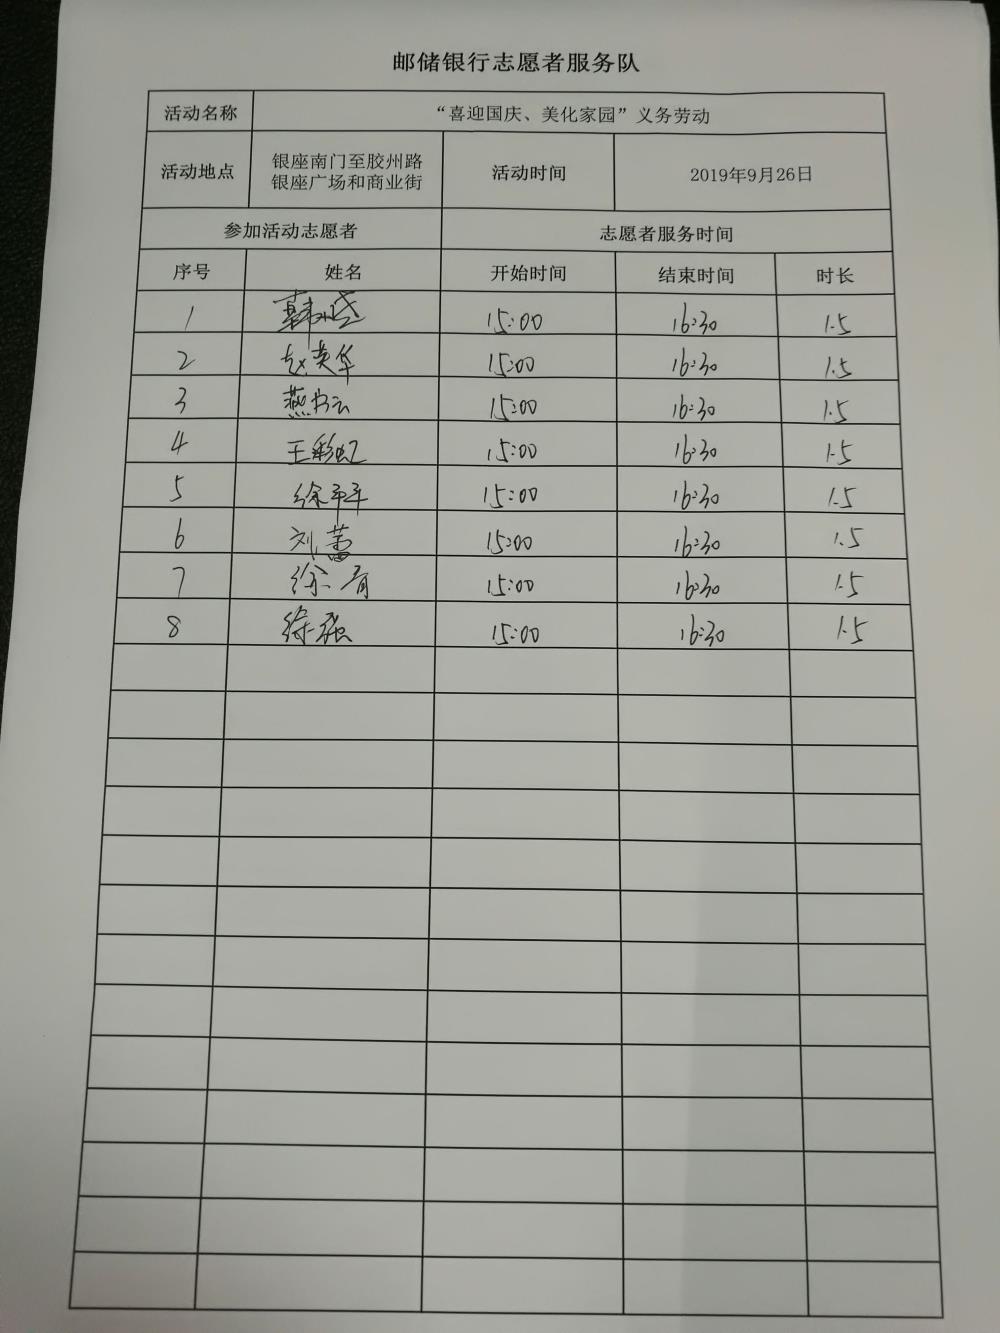 邮储银行志愿者服务队
活动名称 “喜迎国庆、美化家园”义务劳动
活动地点 银座南门至胶州路 活动时间 2019年9月26日
银座广场和商业街
参加活动志愿者 志愿者服务时间
序号 姓名 开始时间 结束时间 时长
1 韩 15:00 16:30 1.5
2 赵英华 15:00 16:30 1.5
3 燕书云 15:00 16:30 1.5
4 王彩虹 15:00 16:30 1.5
5 徐平平 15:00 16:30 1.5
6 刘蕾 15:00 16:30 1.5
7 徐 15:00 16:30 1.5
8 徐强 15:00 16:30 1.5